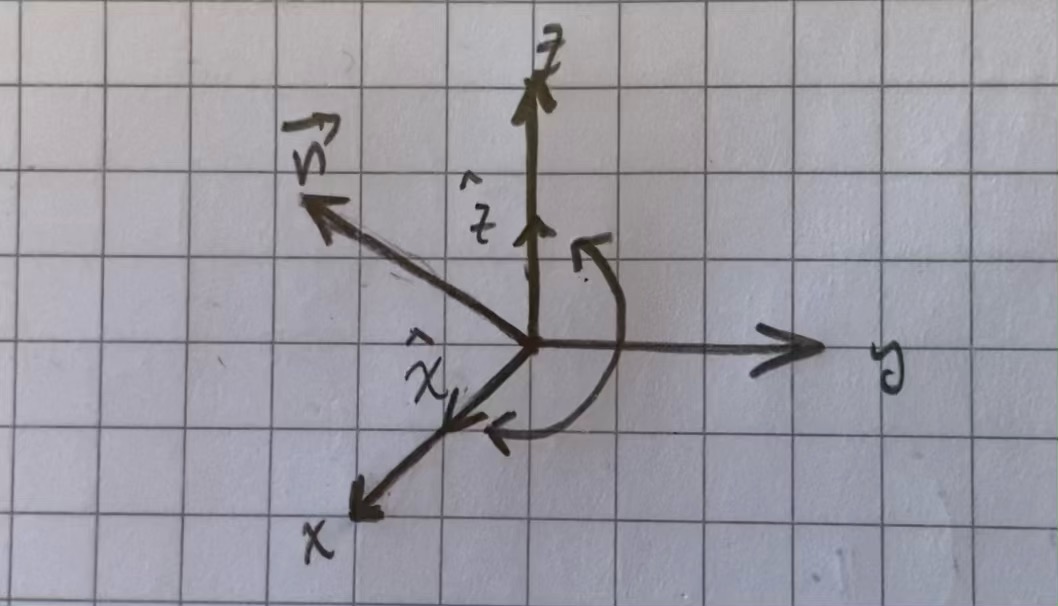 z
n⃗
ẑ
x̂
y
x